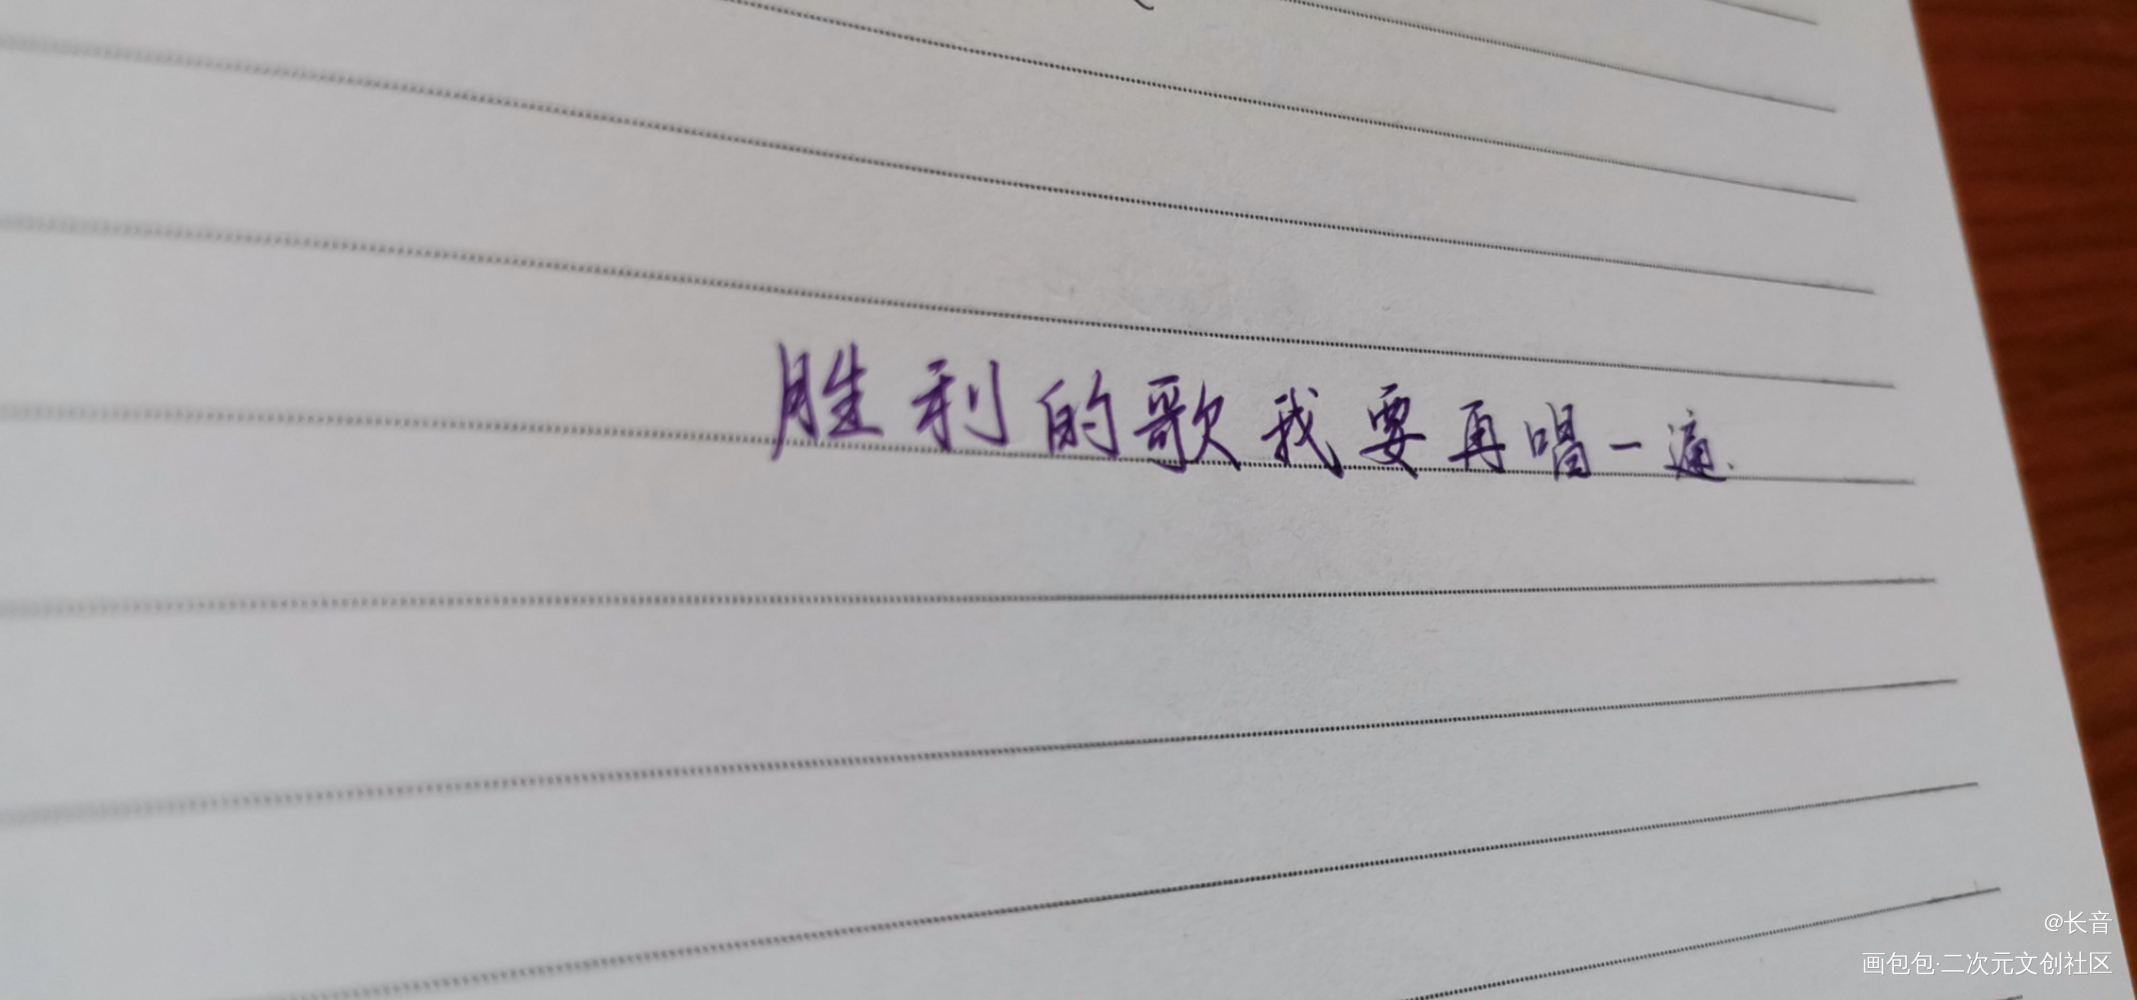 胜利的歌我要再唱一遍.
@长音
画包包·二次元文创社区